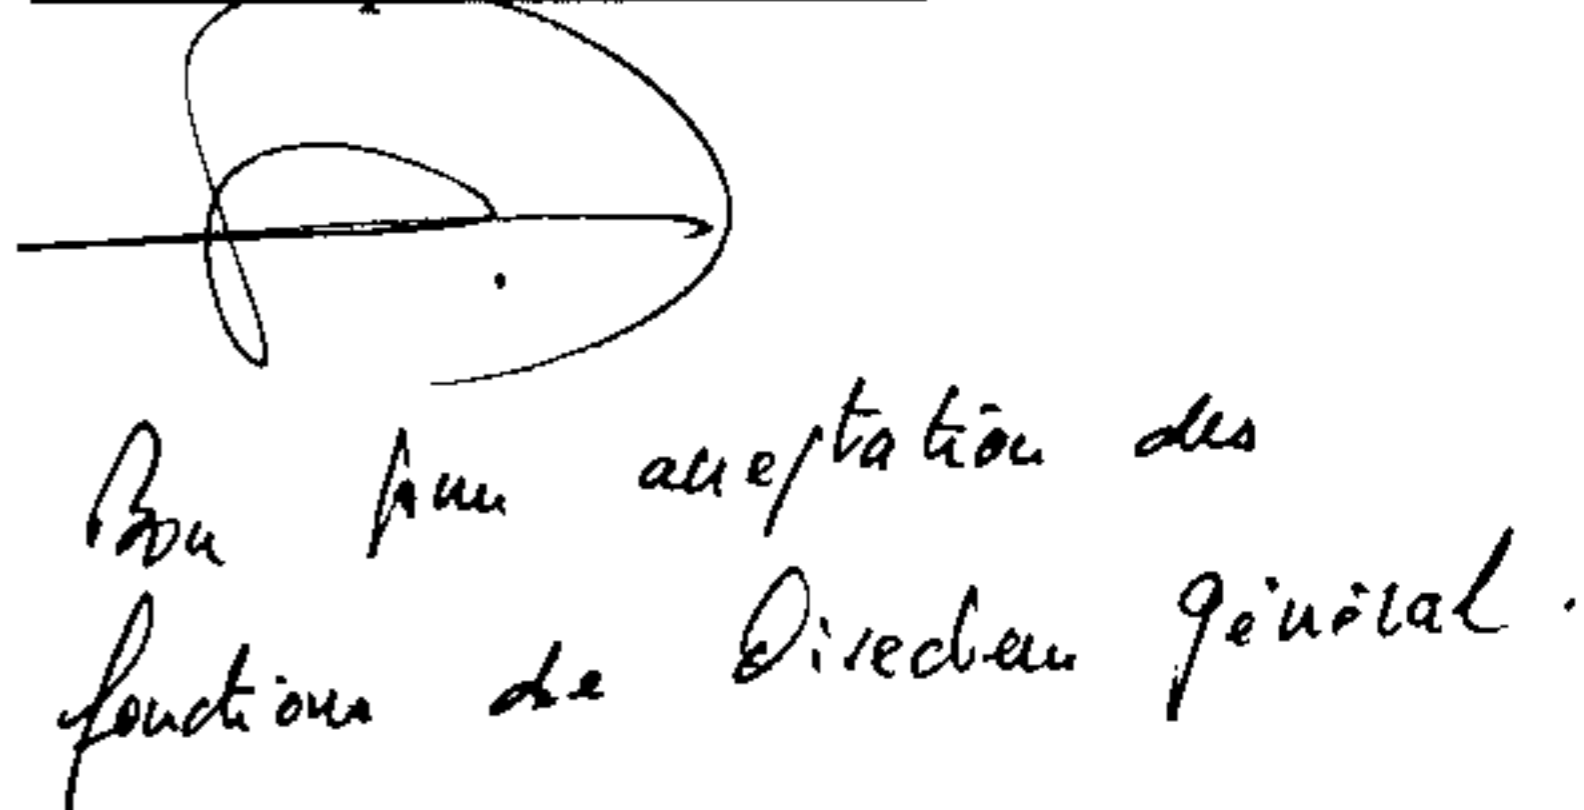 Bon pour acceptation des
fonctions de Directeur général.